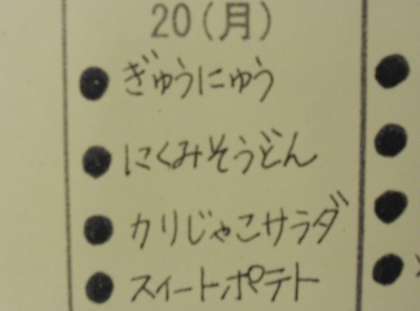 20(月)
● ぎゅうにゅう
● にくみそうどん
● カリじゃこサラダ
● スイートポテト